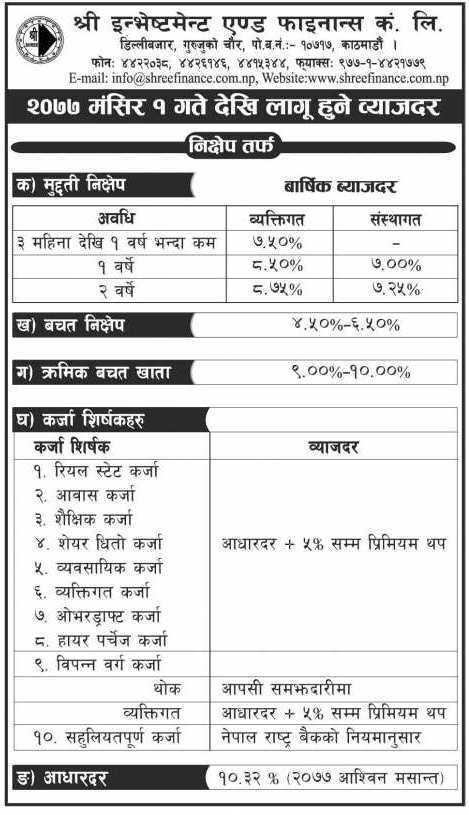 श्री
SHREE
श्री इन्भेष्टमेन्ट एण्ड फाइनान्स कं. लि.
डिल्लीबजार, गुरुजुको चौर, पो.ब.नं.:- १०७१७, काठमाडौं ।
फोनः ४४२२०३८, ४४२६१४६, ४४१५३४४, फ्याक्सः ९७७-१-४४२१७७९
E-mail: info@shreefinance.com.np, Website:www.shreefinance.com.np
२०७७ मंसिर १ गते देखि लागू हुने व्याजदर
निक्षेप तर्फ
क) मुद्दती निक्षेप बार्षिक ब्याजदर
अवधि व्यक्तिगत संस्थागत
३ महिना देखि १ वर्ष भन्दा कम ७.५०% –
१ वर्षे ८.५०% ७.००%
२ वर्षे ८.७५% ७.२५%
ख) बचत निक्षेप ४.५०%–६.५०%
ग) क्रमिक बचत खाता ९.००%–१०.००%
घ) कर्जा शिर्षकहरु
कर्जा शिर्षक व्याजदर
१. रियल स्टेट कर्जा
२. आवास कर्जा
३. शैक्षिक कर्जा
४. शेयर धितो कर्जा आधारदर + ५% सम्म प्रिमियम थप
५. व्यवसायिक कर्जा
६. व्यक्तिगत कर्जा
७. ओभरड्राफ्ट कर्जा
८. हायर पर्चेज कर्जा
९. विपन्न वर्ग कर्जा
थोक आपसी समझदारीमा
व्यक्तिगत आधारदर + ५% सम्म प्रिमियम थप
१०. सहुलियतपूर्ण कर्जा नेपाल राष्ट्र बैंकको नियमानुसार
ङ) आधारदर १०.३२ % (२०७७ आश्विन मसान्त)